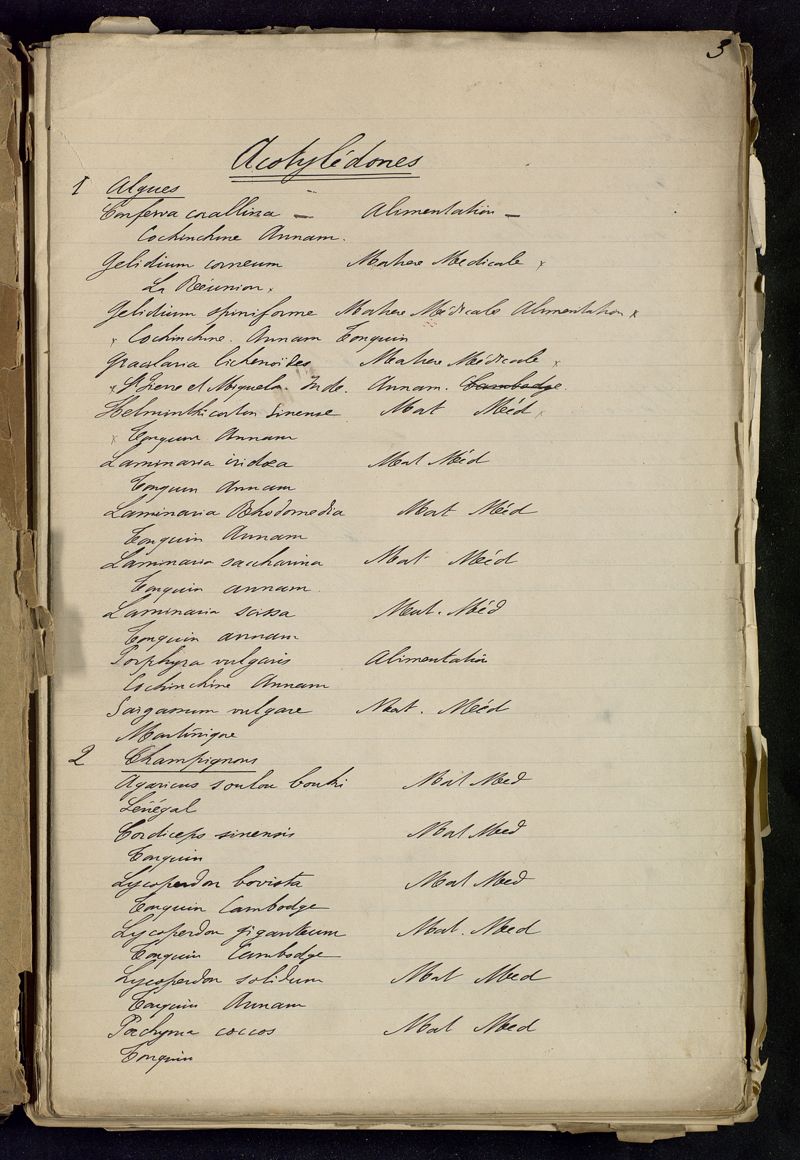 3
Acotylédones
1 Algues
Conferva corallina — Alimentation —
Cochinchine Annam.
Gelidium corneum Matiere Medicale x
La Réunion x
Gelidium spiniforme Matiere Médicale Alimentation x
x Cochinchine. Annam Tonquin
Gracilaria lichenoïdes Matiere Médicale x
x St Pierre et Miquelon. Inde. Annam. Cambodge.
Helminthicorton sinense Mat Méd x
x Tonquin Annam
Laminaria iridoea Mat Méd
Tonquin Annam
Laminaria Rhodomedia Mat Méd
Tonquin Annam
Laminaria saccharina Mat Méd
Tonquin annam.
Laminaria scissa Mat. Méd
Tonquin annam
Porphyra vulgaris Alimentation
Cochinchine Annam
Sargassum vulgare Mat. Méd
Martinique
2 Champignons
Agaricus soulou bouki Mat Med
Sénégal
Cordiceps sinensis Mat Med
Tonquin
Lycoperdon bovista Mat Med
Tonquin Cambodge
Lycoperdon giganteum Mat. Med
Tonquin Cambodge
Lycoperdon solidum Mat Med
Tonquin Annam
Pachyma coccos Mat Med
Tonquin